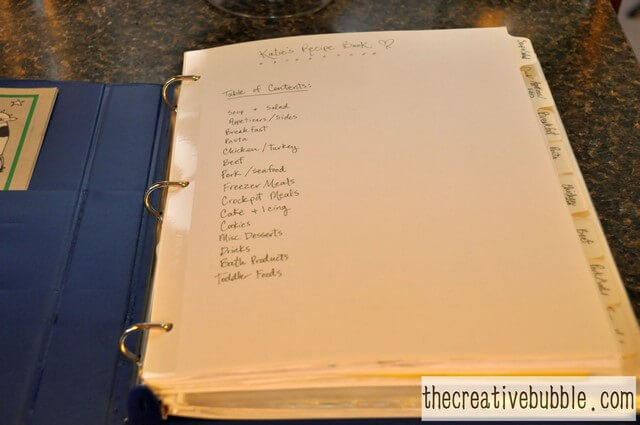 Katie's Recipe Book ♡
Table of Contents:
Soup + Salad
Appetizers/Sides
Breakfast
Pasta
Chicken/Turkey
Beef
Pork/Seafood
Freezer Meals
Crockpot Meals
Cake + Icing
Cookies
Misc Desserts
Drinks
Bath Products
Toddler Foods
Soup/Salad
Breakfast
Pasta
Chicken
Beef
thecreativebubble.com